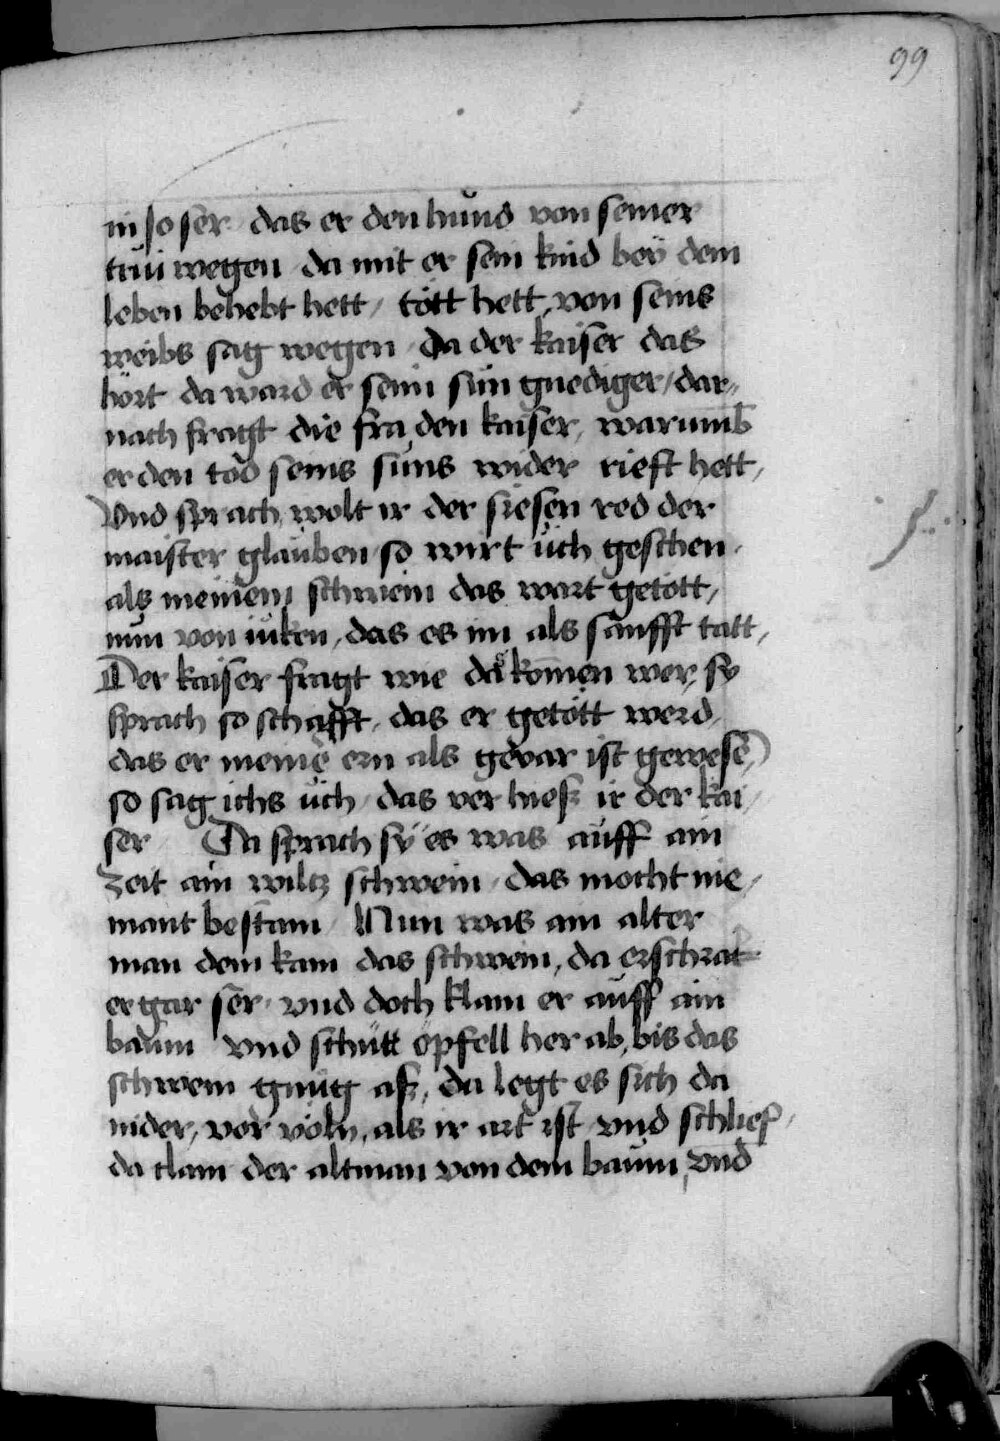 99
in so ser das er den hund von seiner
trüi wegen da mit er sein kind beÿ dem
leben behebt hett / tött hett, von seins
weibs sag wegen Da der kaiser das
hört da ward er seim sun gnediger / dar„
nach fragt die fra den kaiser, warumb
er den tod seins suns wider rieft hett,
Vnd sprach, wolt ir der siesen red der
maister glauben so wirt üch geschen
als meinem schwein das wart getött,
nun von iuken, das es im als saufft tatt,
Der kaiser fragt wie da komen wer, sy
sprach so schafft, das er getött werd,
das er meinē ern als gevar ist gewesē,
so sag ichs üch, das ver hiesz ir der kai,
ser Da sprach sÿ es was auff ain
zeit ain wiltz schwein, das mocht nie,
mant bestam Nun was ain alter
man dem kam das schwein, da erschrak
er gar ser, vnd doch klam er auff ain
baum vnd schütt öpfell her ab, bis das
schwein gnüg asz, da legt es sich da
nider, vor völn, als ir art ist vnd schlief,
da clam der altman von dem baum, vnd